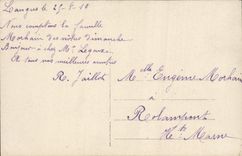 Langres le 25-8-10
Nous comptons la famille
Morhain des nôtres dimanche
Bonjour à chez Mr Legars
et tous nos meilleures amitiés
R. Jaillot
Melle Eugénie Morhain
à
Rolampont
Hte Marne